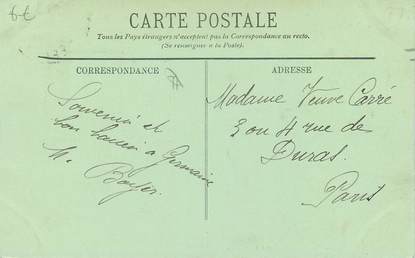 6€
CARTE POSTALE
Tous les Pays étrangers n'acceptent pas la Correspondance au recto.
(Se renseigner à la Poste).
CORRESPONDANCE
Souvenir et
bon baiser a Germaine
M.
ADRESSE
Madame Veuve Carré
3 ou 4 rue de
Duras.
Paris